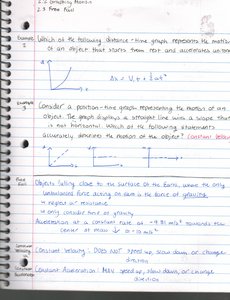 2.2 Graphing Motion
2.3 Free Fall
Example 2
Which of the following distance-time graph represents the motion
of an object that starts from rest and accelerates uniform
d
t
Δx = Vit + ½at²
Example 3
Consider a position-time graph representing the motion of an
object. The graph displays a straight line with a slope that
is not horizontal. Which of the following statements
accurately describes the motion of the object? (Constant Velocity
Free Fall
Objects falling close to the surface of the Earth, where the only
unbalanced force acting on them is the force of gravity
→ neglect air resistance
→ only consider force of gravity
Acceleration at a constant rate of -9.81 m/s² towards the
center of mass
-10 m/s²
Constant Velocity
Constant Velocity: DOES NOT speed up, slow down, or change
direction
Constant Acceleration
Constant Acceleration: MAY speed up, slow down, or change
direction